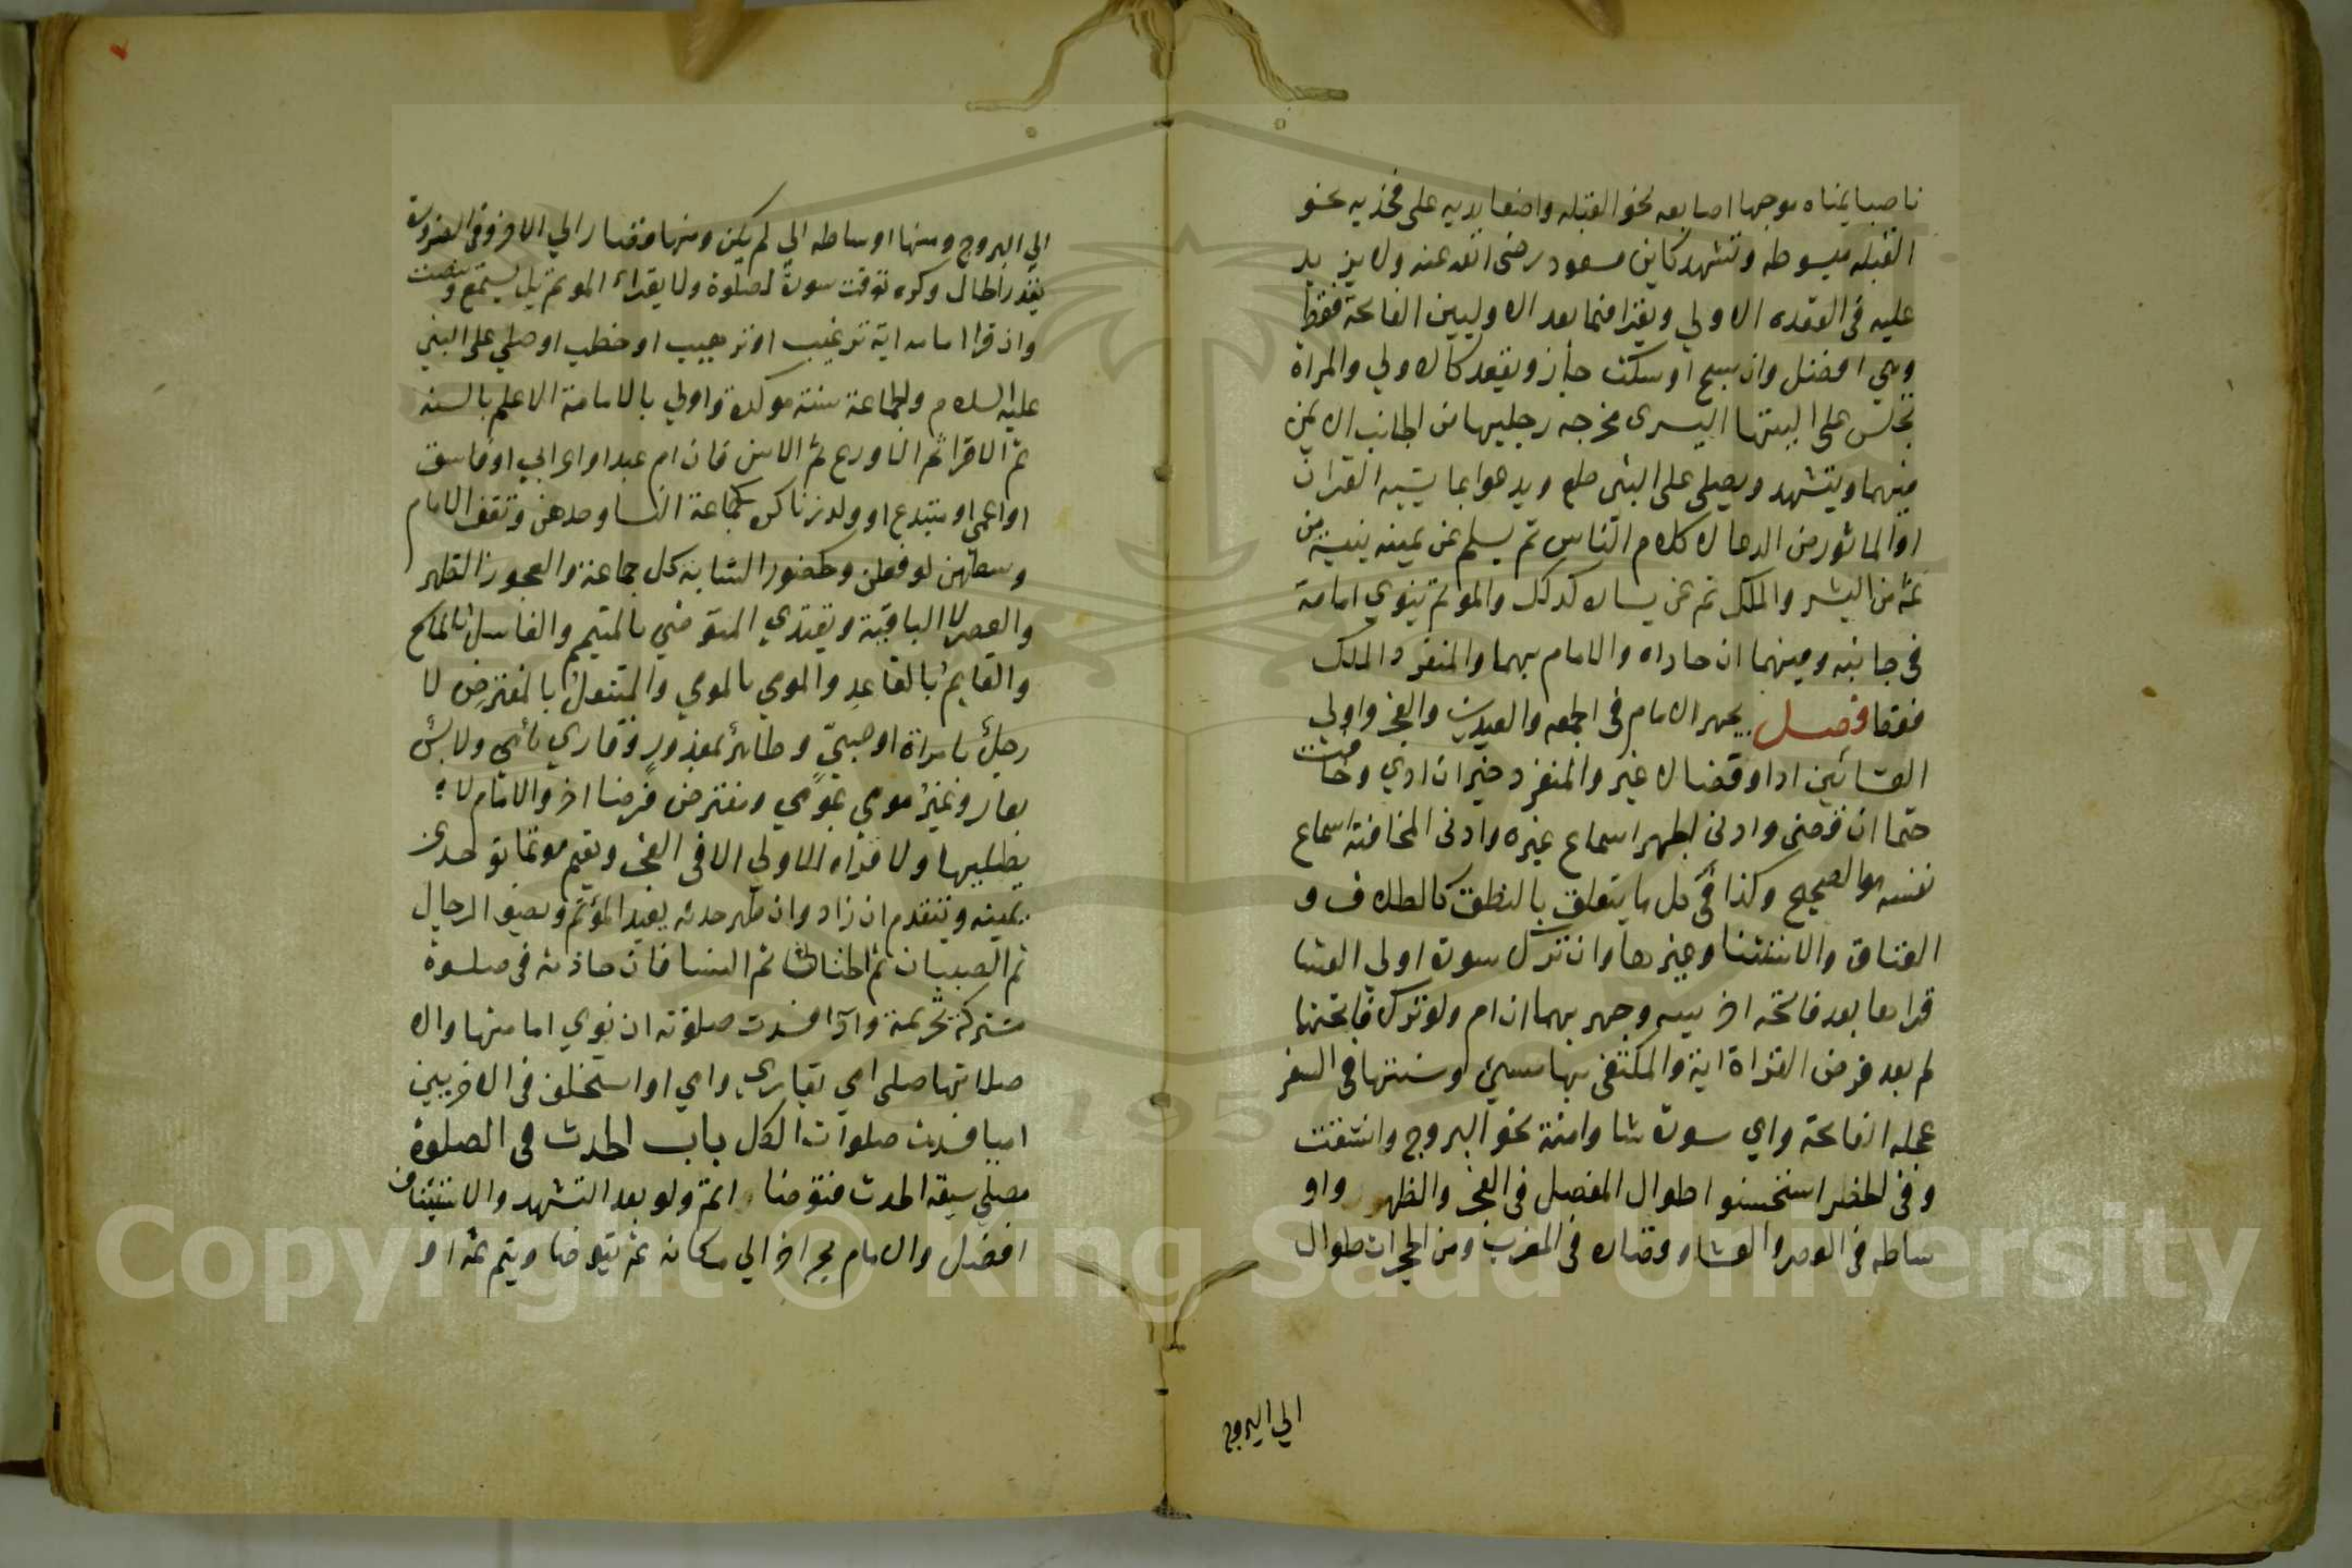 ناصبا يمناه موجها اصابعه نحو القبله واضعا يديه على فخذيه نحو
القبله مبسوطه وتشهد كابن مسعود رضى الله عنه ولا يزيد
عليه فى القعده الاولي ويقرا فيما بعد الاوليين الفاتحة فقط
وهي افضل وان سبح او سكت جاز ويقعد كالاولي والمراة
تجلس على اليتها اليسرى مخرجه رجليها من الجانب الايمن
فيهما ويتشهد ويصلى على النبى صلع ويدعوا بما يشبه القران
او الماثور من الدعا لا كلام الناس ثم يسلم عن يمينه بنية من
ثمه من البشر والملك ثم عن يساره كذلك والموتم ينوي امامة
فى جانبه وفيهما ان حاذاه والامام بهما والمنفرد الملك
فقط فصل يجهر الامام فى الجمعه والعيدين والفجر واولي
العشائين ادا وقضا لا غير والمنفرد خير ان ادي وخافت
حتما ان قضى وادنى الجهر اسماع غيره وادنى المخافتة اسماع
نفسه هو الصحيح وكذا فى كل ما يتعلق بالنطق كالطلاق و
العتاق والاستثنا وغيرها وان ترك سورة اولي العشا
قراها بعد فاتحة اخرييه وجهر بهما ان ام ولو ترك فاتحتها
لم يعد فرض القراة اية والمكتفى بها مسيئ وسنتها فى السفر
عجله الفاتحة واي سورة شا وامنة نحو البروج وانشقت
وفى الحضر استحسنوا طوال المفصل فى الفجر والظهر واو
ساطه فى العصر والعشا وقصاره فى المغرب ومن الحجرات طوال
الي البروج
الي البروج ومنها اوساطه الي لم يكن ومنها قصار الي الاخر وفى الضرورة
بقدر الحال وكره توقت سورة لصلوة ولا يقراء الموتم بل يستمع وينصت
وان قرا امامه اية ترغيب او ترهيب او خطب او صلي على النبي
عليه السلام والجماعة سنة موكدة واولي بالامامة الاعلم بالسنه
ثم الاقرا ثم الاورع ثم الاسن فان ام عبد او اعرابي او فاسق
او اعمى او مبتدع او ولد زنا كره كجماعة النسا وحدهن وتقف الامام
وسطهن لو فعلن وكحضور الشابة كل جماعة والعجوز الظهر
والعصر لا الباقية ويقتدي المتوضي بالمتيمم والغاسل بالماسح
والقايم بالقاعد والمومي بالمومي والمتنفل بالمفترض لا
رجل بامراة او صبي وطاهر بمعذور وقاري بأمي ولابس
بعار وغير مومي بمومي ومفترض فرضا اخر والامام لا
يطيلها ولا قراه الاولي الا فى الفجر ويقيم موتما توحد عن
يمينه ويتقدم ان زاد وان ظهر حدثه يعيد المؤتم ويصف الرجال
ثم الصبيان ثم الخناثا ثم النسا فان حاذته فى صلوة
مشتركة تحريمة وادا فسدت صلوته ان نوي امامتها والا
صلاتها صلى امي بقاري وامي او استخلف فى الاخريين
اميا فسدت صلوات الكل باب الحدث فى الصلوة
مصلي سبقه الحدث فتوضا واتم ولو بعد التشهد والاستيناف
افضل والامام يجر اخر الي مكانه ثم يتوضا ويتم ثمه او
Copyright © King Saud University
1957